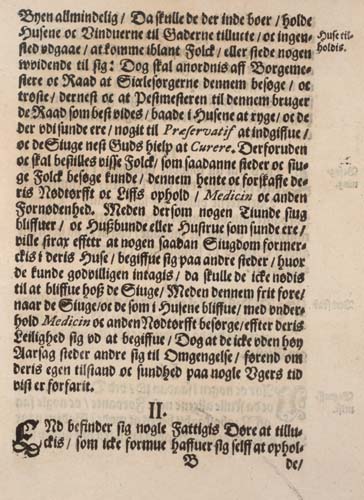 Byen allmindelig / Da skulle de der inde boer / holde
Husene oc Vinduerne til Gaderne tillucte / oc ingen-
sted vdgaae / at komme iblant Folck / eller stede nogen
vvidende til sig: Dog skal anordnis aff Borgeme-
stere oc Raad at Sielesørgerne dennem besøge / oc
trøste / dernest oc at Pestmesteren til dennem bruger
de Raad som best vides / baade i Husene at ryge / oc de
der vdi sunde ere / nogit til Præservatif at indgiffue /
oc de Siuge nest Guds hielp at Curere. Derforuden
oc skal bestilles visse Folck / som saadanne steder oc siu-
ge Folck besøge kunde / dennem hente oc forskaffe de-
ris Nødtørfft oc Liffs ophold / Medicin oc anden
Fornødenhed. Meden dersom nogen Tiunde siug
bliffuer / oc Hußbunde eller Hustrue som sunde ere /
ville strax effter at nogen saadan Siugdom former-
ckis i deris Huse / begiffue sig paa andre steder / huor
de kunde godvilligen intagis / da skulle de icke nødis
til at bliffue hoß de Siuge / Meden dennem frit fore /
naar de Siuge / oc de som i Husene bliffue / med vnder-
hold Medicin oc anden Nødtørfft besørge / effter deris
Leilighed sig vd at begiffue / Dog at de icke vden høy
Aarsag steder andre sig til Omgengelse / førend om
deris egen tilstand oc sundhed paa nogle Vgers tid
vist er forfarit.
Huse til-
holdis.
II.
END befinder sig nogle Fattigis Døre at tillu-
ckis / som icke formue haffuer sig selff at ophol-
B
de /